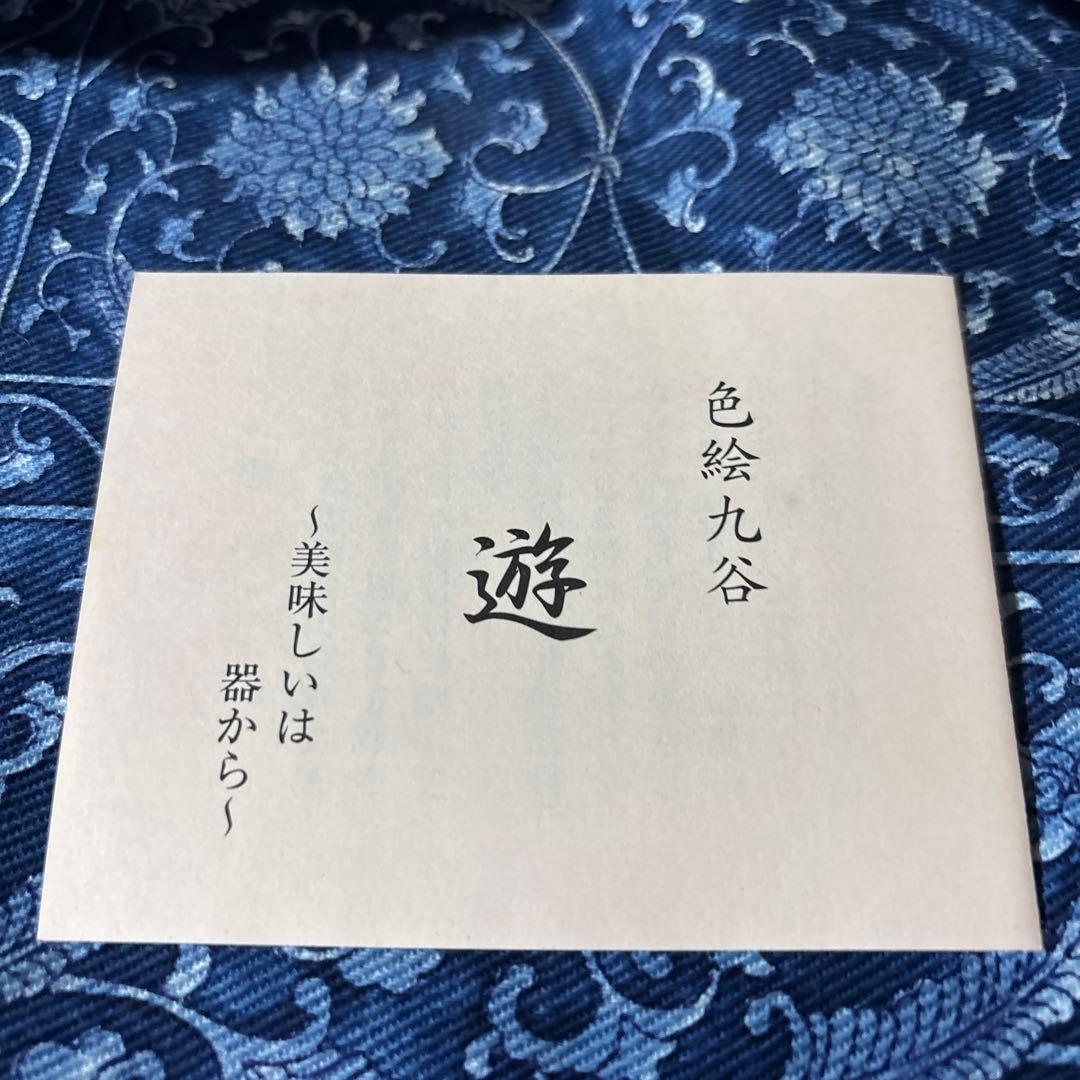 色絵九谷
遊
〜美味しいは
器から〜